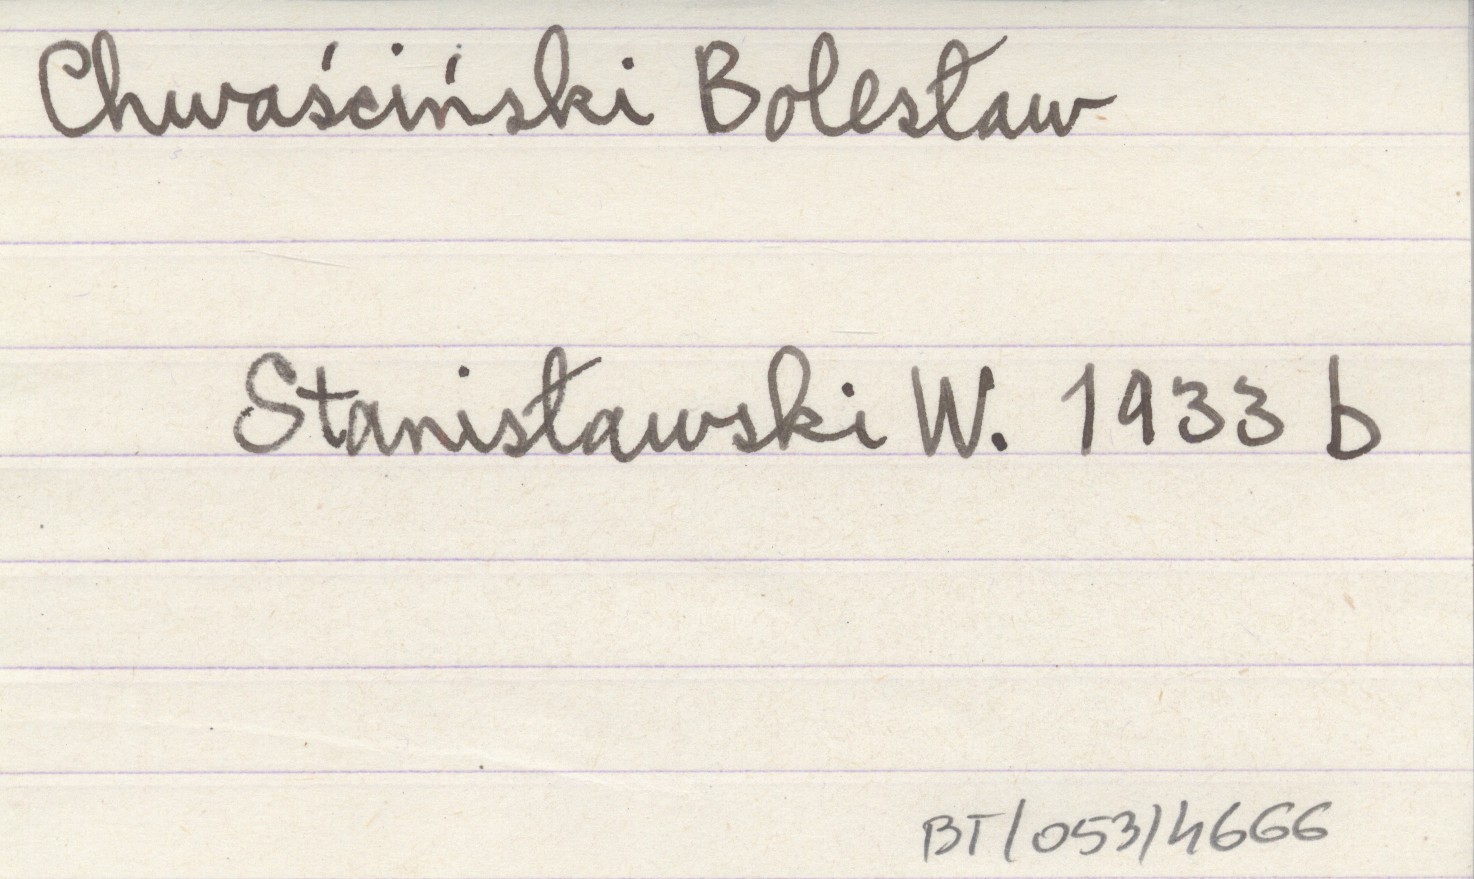 Chwaściński Bolesław
Stanisławski W. 1933 b
BT/053/4666